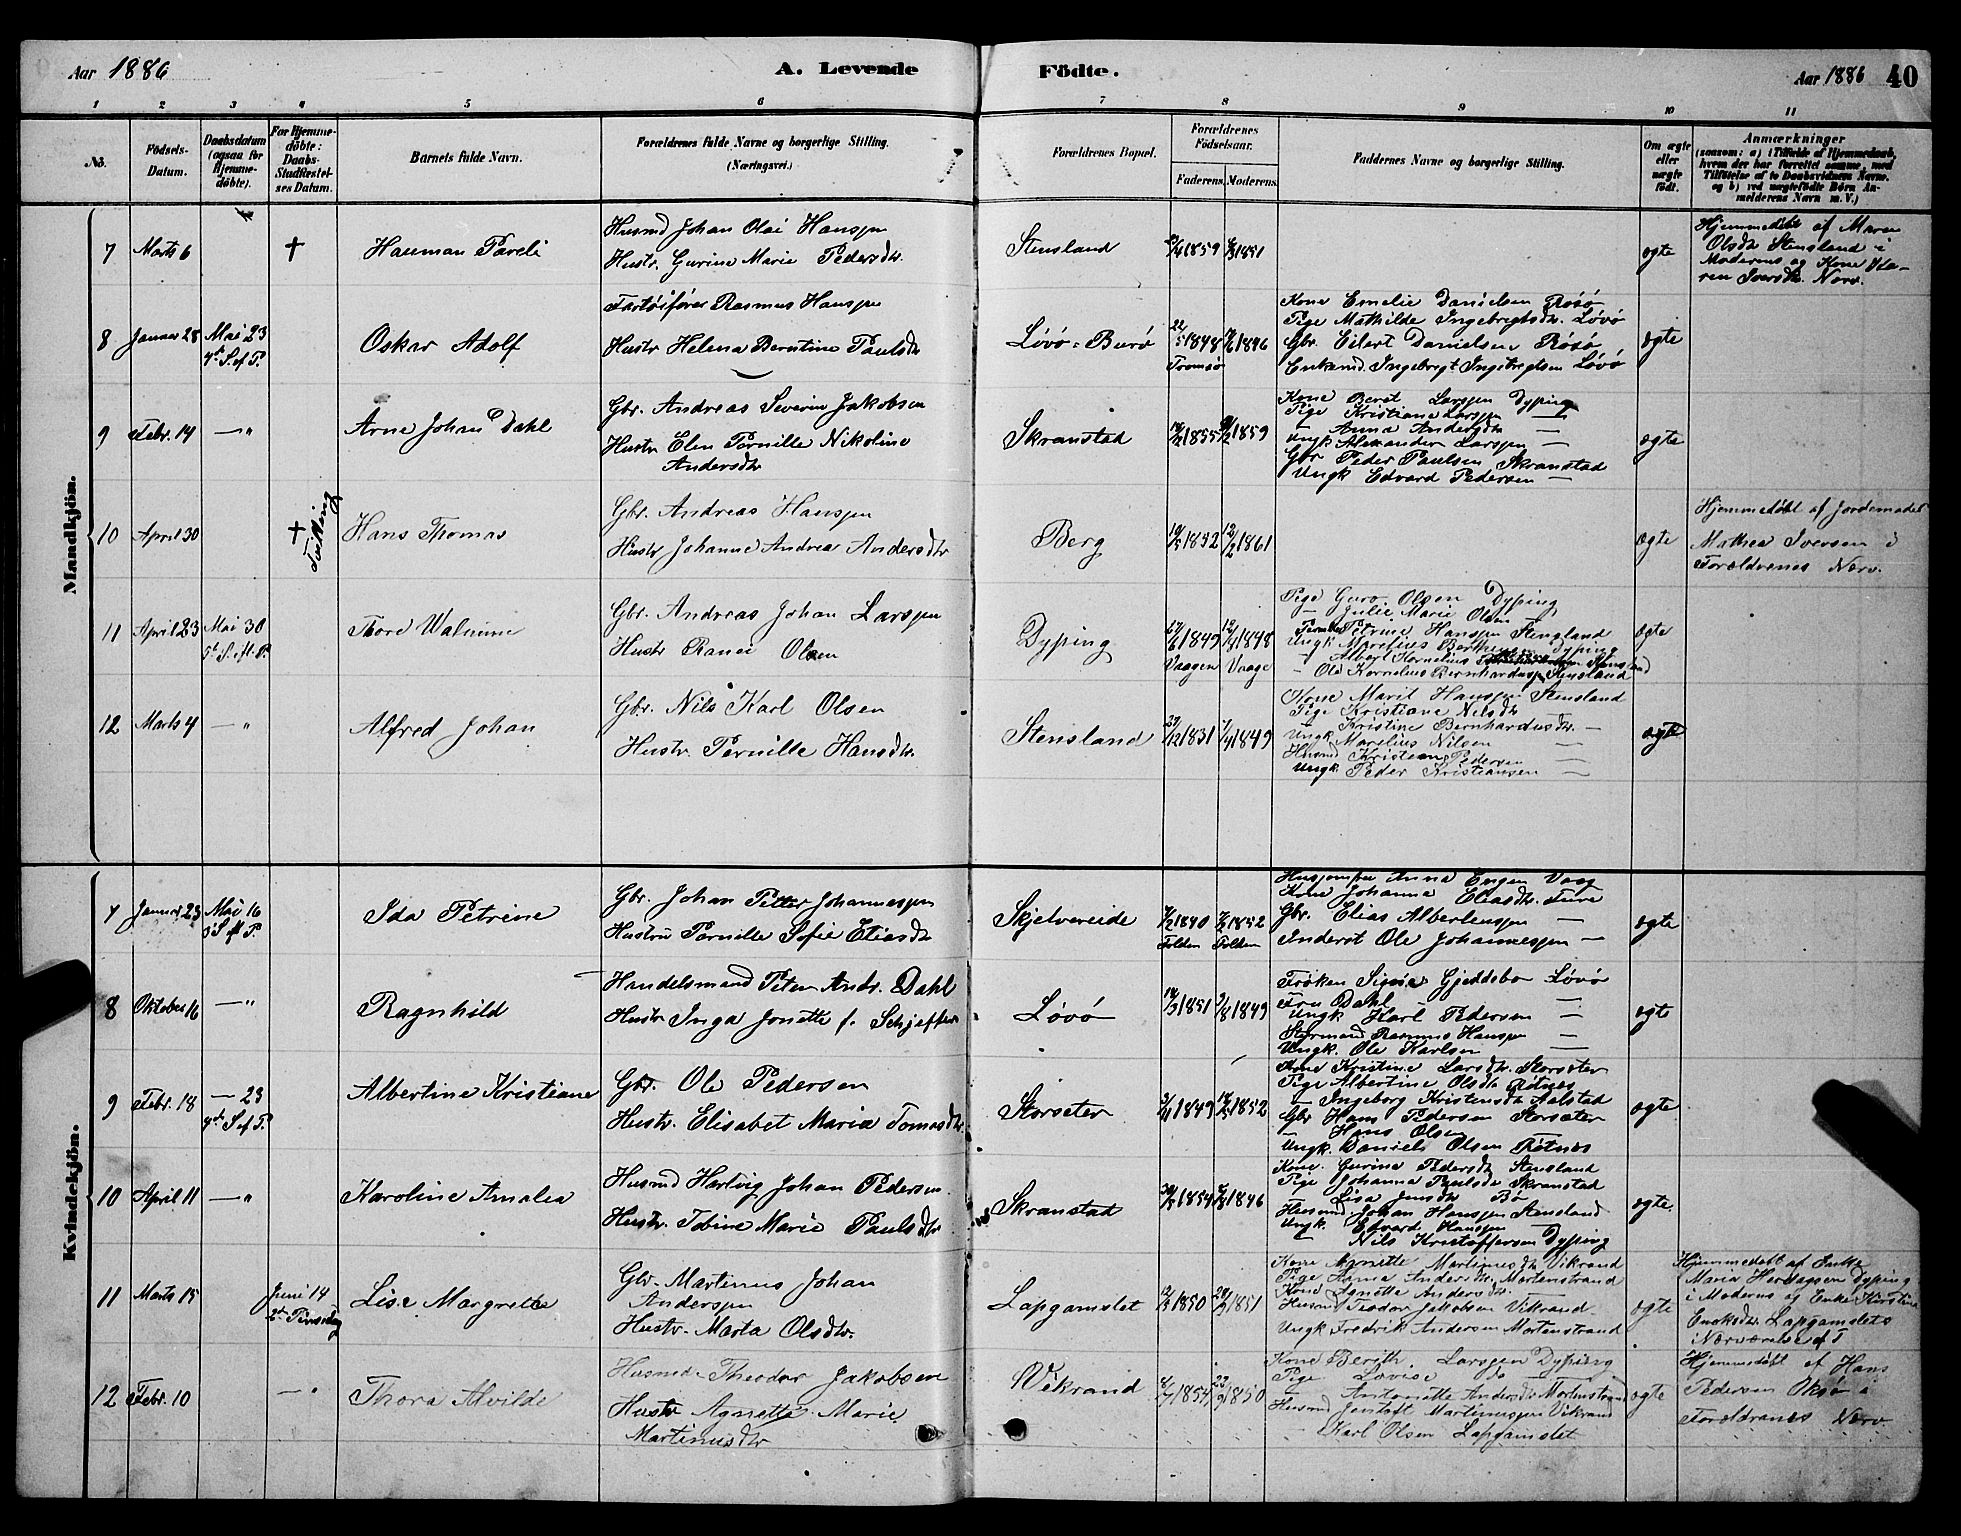 Aar 1886
A. Levende
Födte.
Aar 1886
40
1 2 3 4 5 6 7 8 9 10 11
No.
Födsels-
Datum.
Daabsdatum
(ogsaa for
Hjemme-
döbte).
For Hjemme-
döbte:
Daabs-
Stadfæstel-
ses Datum.
Barnets fulde Navn.
Forældrenes fulde Navne og borgerlige Stilling.
(Næringsvei.)
Forældrenes Bopæl.
Forældrenes
Födselsaar.
Faderens. Moderens.
Faddernes Navne og borgerlige Stilling.
Om ægte
eller
uægte
födt.
Anmærkninger
(saasom: a) i Tilfælde af Hjemmedaab,
hvem der har forrettet samme, med
Tilföielse af to Daabsvidners Navne.
og b) ved uægtefödte Börn An-
melderens Navn m. V.)
Mandkjön.
7 Marts 6 †
Hauman Pareli
Husmd Johan Olai Hanssen
Hustr. Gurine Marie Pedersdtr.
Stensland
1859 1851
ægte
Hjemmedøbt af Maren
Olsdtr Stensland i
Moderens og Kone
Iversdtr. Nærv.
8 Januar 28 Mai 23
4de S. ef P.
Oskar Adolf
Fartøifører Rasmus Hanssen
Hustr Helena Berntine Paulsdtr
Løvø: Burø
1848 1846
Tromsø
Kone Emelie Danielsen Røsø
Pige Mathilde Ingebregtsdtr. Løvø
Gbr. Eilert Danielsen Røsø
Enkemd. Ingebregt Ingebregtsen Løvø
ægte
9 Febr. 14 —"
Arne Johan Dahl
Gbr. Andreas Severin Jakobsen
Hustr Elen Pernille Nikoline
Andersdtr
Skranstad
1855 1859
Kone Beret Larssen Dyping
Pige Kristiane Larssen —
" Anna Andersdtr —
Ungk. Alexander Larssen —
Gbr Peder Paulsen Skranstad
Ungk Edvard Pedersen —
ægte
10 April 30 †
Hans Thomas
Gbr. Andreas Hanssen
Hustr Johanne Andrea Andersdtr
Berg
1852 1861
ægte
Hjemmedøbt af Jordemoder
Mathea Iversen i
Forældrenes Nærv.
11 April 23 Mai 30
5te S. eft. P.
Thore
Gbr. Andreas Johan Larssen
Hustr Olsen
Dyping
1849 1848
Vaagen Vaage
Pige Guro Olsen Dyping
— Julie Marie Olsen
Petrine Hanssen Stensland
Ungk Marelius Dyping
— Albert Kornelius
— Ole Kornelius Bernhardussen Stensland
ægte
12 Marts 4 —"
Alfred Johan
Gbr. Nils Karl Olsen
Hustr. Pernille Hansdtr.
Stensland
1831 1849
Kone Marit Hanssen Stensland
Pige Kristiane Nilsdtr —
" Kristine Bernhardusdtr. —
Ungk Marelius Nilsen —
Husmd Kristian Pedersen —
Ungk. Peder Kristiansen —
ægte
Kvindekjön.
7 Januar 23 Mai 16
3 S. eft P.
Ida Petrine
Gbr. Johan Petter Johannessen
Hustru Pernille Sofie Eliasdtr
Skjelvereide
1840 1852
Folden Folden
Husjomfru Anna Engen Vaag
Kone Johanna Eliasdtr. Fure
Gbr. Elias Albertenssen —
Inderst Ole Johannessen —
ægte
8 Oktober 16 —"
Ragnhild
Handelsmand Peter Andr. Dahl
Hustr Inga Jonette f. Schjeffer
Løvø
1851 1849
Frøken Signe Gjeddebo Løvø
Fru Dahl —
Ungk Karl Pedersen —
Styrmand Rasmus Hanssen —
Ungk. Ole Karlsen —
ægte
9 Febr. 18 — 23
4de S. ef P.
Albertine Kristiane
Gbr. Ole Pedersen
Hustr. Elisabet Maria Tomasdtr.
Storseter
1849 1852
Kone Kristine Larsdtr. Storseter
Pige Albertine Olsdtr Røtnes
— Ingeborg Kristensdtr Aalstad
Gbr Hans Pedersen Storsæter
— Hans Olsen
Ungk. Daniels Olsen Røtnes
ægte
10 April 11 —"
Karoline Amalia
Husmd Hartvig Johan Pedersen
Hustr. Tobine Marie Paulsdtr
Skranstad
1854 1846
Kone. Gurine Pedersdtr Stensland
Pige Johanna Paulsdtr Skranstad
— Lisa Jensdtr Bø
Husmd Johan Hanssen Stensland
Ungk. Edvard Hanssen —
— Nils Kristoffersen Dyping
ægte
11 Marts 15 Juni 14
2den Pinsedag
Lise Margrethe
Gbr. Martinus Johan
Anderssen
Hustr. Marta Olsdtr.
Lapgamslet
1850 1851
Kone Agnette Martinusdtr Vikrand
Pige Anna Andersdtr. Mortenstrand
Kone Agnette Andersdtr. —
Husmd Teodor Jakobsen Vikrand
Ungk Fredrik Andersen Mortenstrand
ægte
Hjemmedøbt af Enke
Maria Dyping
i Moderens og Enke Kirstine
Enoksdtr. Lapgamslets
i Nærværelse df T
12 Febr. 10 —"
Thora Alvilde
Husmd. Theodor Jakobsen
Hustr Agnetta Marie
Martinusdtr
Vikrand
1854 1850
Kone Berith. Larssen Dyping
Pige Lovise do —
— Antonette Andersdtr Mortenstrand
Husmd Martinussen Vikrand
— Karl Olsen Lapgamslet
ægte
Hjemmedøbt af Hans
Pedersen Oksø i
Forældrenes Nærv.